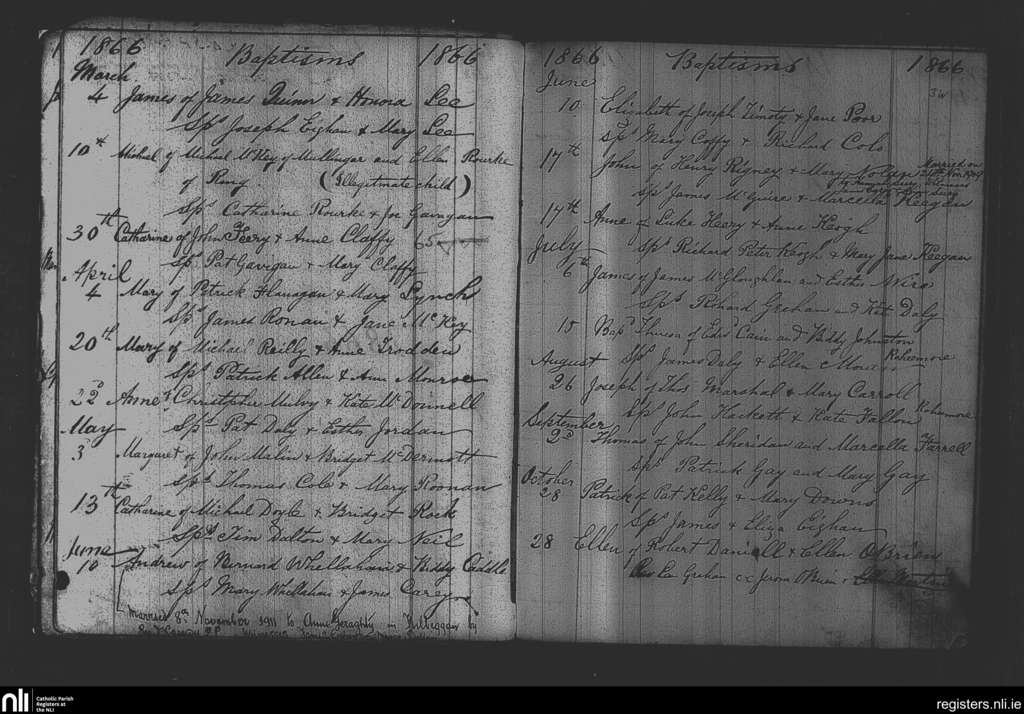 1866 Baptisms 1866
March
4 James of James Quinn & Honora Lee
Sps Joseph Eighan & Mary Lee
10th Michael of Michael McKey of Mullingar and Ellen Rourke
of Rony. (Illegitmate child)
Sps Catharine Rourke & Jos Gavagan
30th Catharine of John Feery & Anne Claffy 65
Sps Pat Gavigan & Mary Claffy
April
4 Mary of Patrick Flanagan & Mary Lynch
Sps James Ronan & Jane McKey
20th Mary of Michael Reilly & Anne Trodden
Sps Patrick Allen & Ann Monroe
22d Anne of Christopher Mulvy & Kate McDonnell
May Sps Pat Daly & Esther Jordan
3 Margaret of John Malin & Bridget McDermott
Sps Thomas Cole & Mary Roonan
13th Catharine of Michael Doyle & Bridget Rock
Sps Tim Dalton & Mary Neil
June
10 Andrew of Bernard Whellahan & Biddy Caddle
Sps Mary Whellahan & James Carey
Married 8th November 1911 to Anne Geraghty in Kilbeggan by
1866 Baptisms 1866
June
10 Elizabeth of Joseph & Jane Poor
Sps Mary Coffy & Richard Cole
17th John of Henry Rigney & Mary Nolan Married on
Sps James McGuire & Marcella Keegan
17th Anne of Luke Keery & Anne Keogh
July Sps Richard Peter Keogh & Mary Jane Keegan
6th James of James McGloughlan and Esther
Sps Richard Grehan and Kate Daly
15 Bapd of Edwd Cain and Biddy Johnston
August Sps James Daly & Ellen
26 Joseph of Thos Marshal & Mary Carroll
Sps John Hackett & Kate Fallon
September
2d Thomas of John Sheridan and Marcella Farrell
Sps Patrick Gay and Mary Gay
October
28 Patrick of Pat Kelly & Mary Downs
Sps James & Eliza Eighan
28 Ellen of Robert Daniell & Ellen OBrien
Grehan cc
nli Catholic Parish
Registers at
the NLI
registers.nli.ie